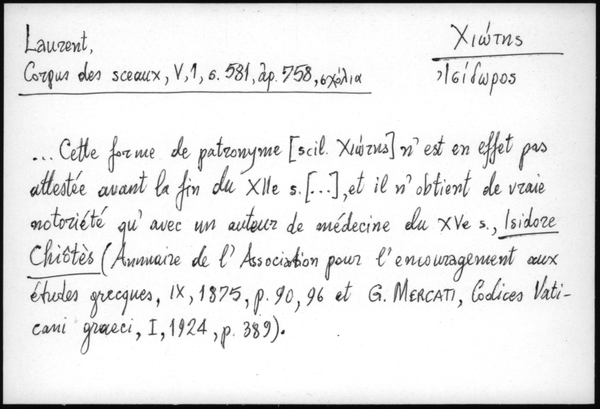 Laurent,
Corpus des sceaux, V,1, s. 581, ἀρ. 758, σχόλια
Χιώτης
Ἰσίδωρος
... Cette forme de patronyme [scil. Χιώτης] n'est en effet pas
attestée avant la fin du XIIe s. [...], et il n'obtient de vraie
notoriété qu'avec un auteur de médecine du XVe s., Isidore
Chiôtès (Annuaire de l'Association pour l'encouragement aux
études grecques, IX, 1875, p. 90, 96 et G. MERCATI, Codices Vati-
cani graeci, I, 1924, p. 389).